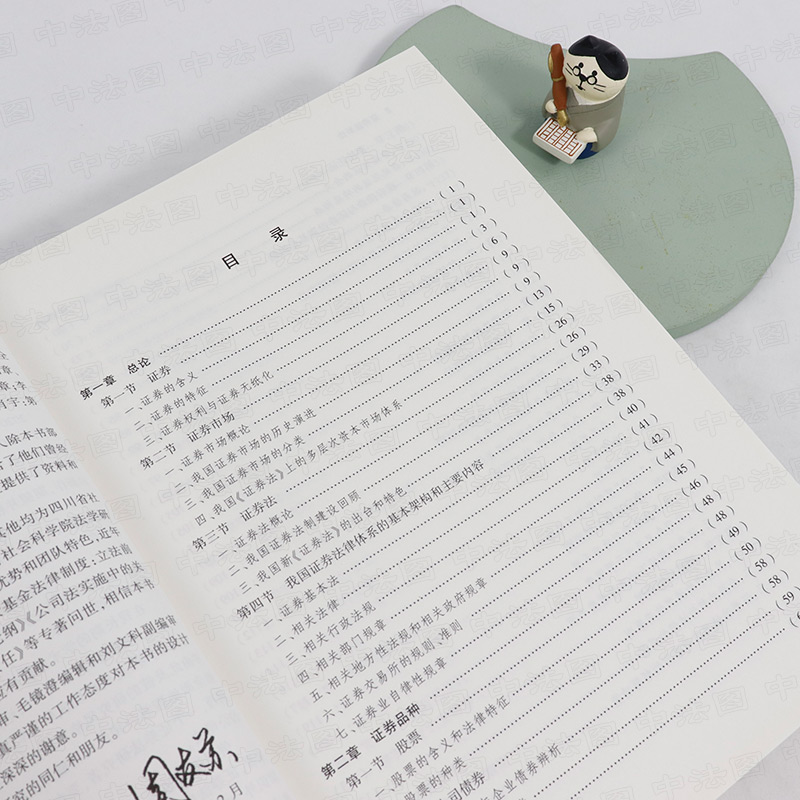 章;李
肖宇;第
人除本书部
了他们曾经
提供了资料和
其他均为四川省社
社会科学院法学研
优势和团队特色,近年
基金法律制度:立法
纲》《公司法实施中的关
任》等专著问世,相信本书
有贡献。
审、毛镜澄编辑和刘文科副编审
真严谨的工作态度对本书的设计
深深的谢意。
究的同仁和朋友。
周友苏
月
目 录
第一章 总论 (1)
第一节 证券 (1)
一、证券的含义 (1)
二、证券的特征 (3)
三、证券权利与证券无纸化 (6)
第二节 证券市场 (9)
一、证券市场概论 (9)
二、我国证券市场的历史演进 (9)
三、我国证券市场的分类 (13)
四、我国《证券法》上的多层次资本市场体系 (15)
第三节 证券法 (26)
一、证券法概论 (26)
二、我国证券法制建设回顾 (29)
三、我国新《证券法》的出台和特色 (33)
第四节 我国证券法律体系的基本架构和主要内容 (38)
一、证券基本法 (38)
二、相关法律 (40)
三、相关行政法规 (41)
四、相关部门规章 (42)
五、相关地方性法规和相关政府规章 (44)
六、证券交易所的规则、准则 (45)
七、证券业自律性规章 (46)
第二章 证券品种 (48)
第一节 股票 (48)
一、股票的含义和法律特征 (49)
二、股票的种类 (50)
公司债券 (58)
企业债券辨析 (58)
(59)
中法图